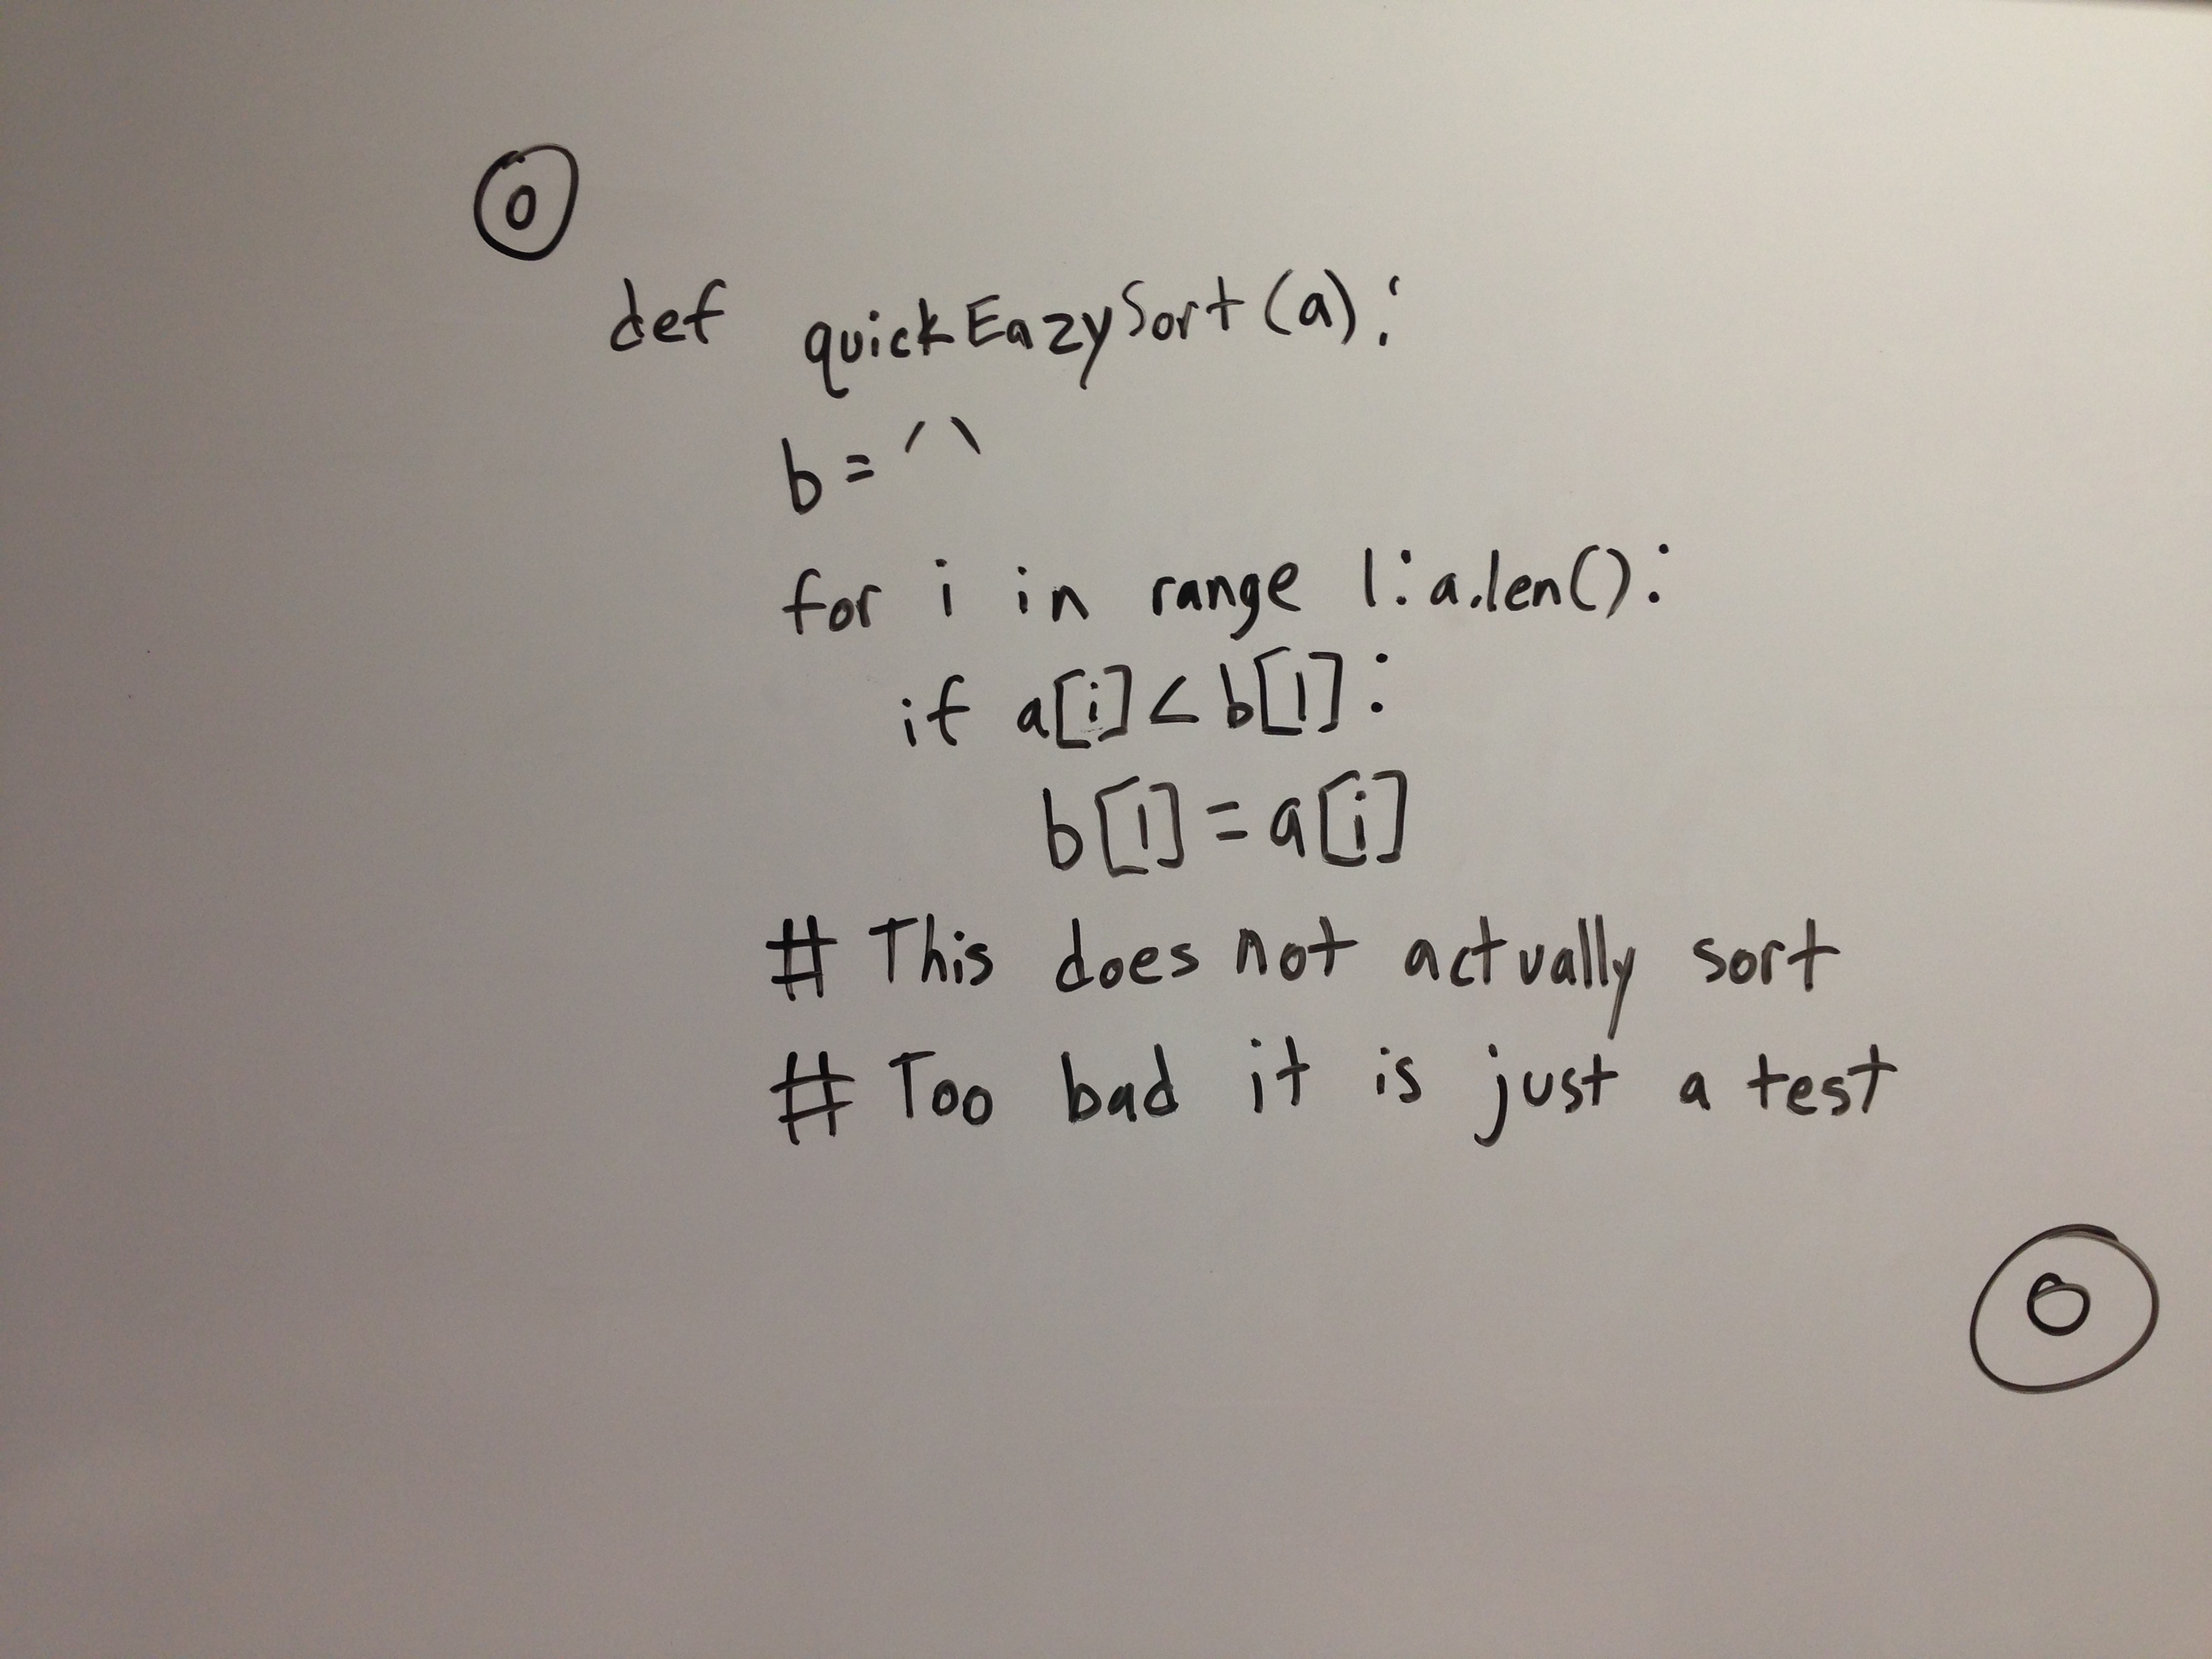 0
def quickEazySort(a):
b = ' '
for i in range 1:a.len():
if a[i] < b[1]:
b[1] = a[i]
# This does not actually sort
# Too bad it is just a test
0